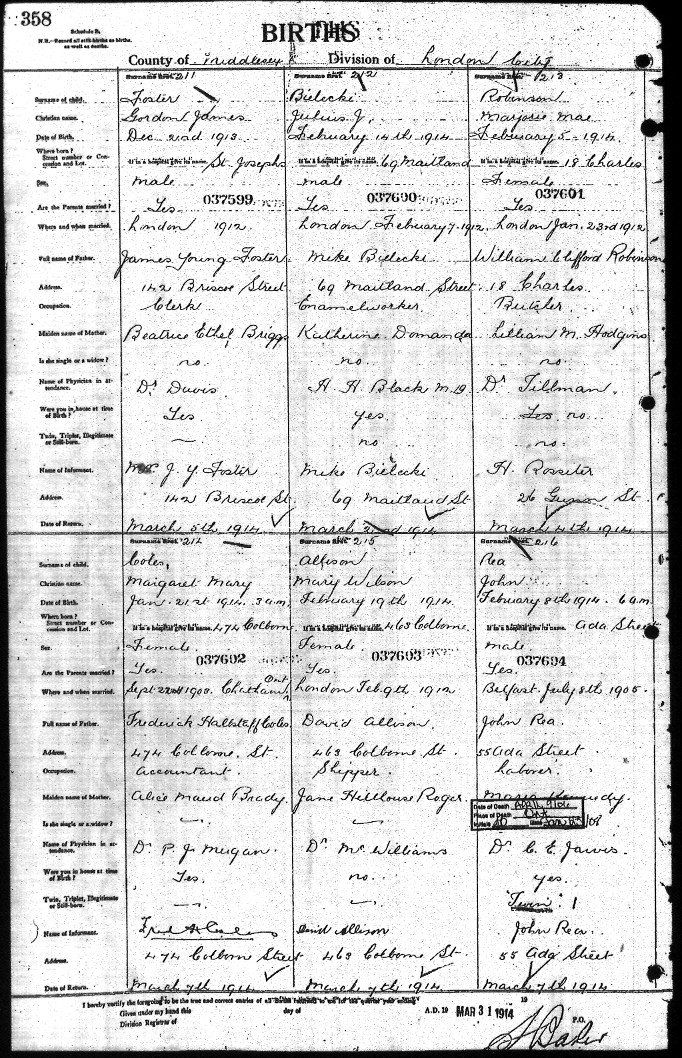 358
Schedule B.
N.B.—Record all still-births as births, as well as deaths.
BIRTHS
County of Middlesex Division of London City
211 212 213
Surname of child. Foster Bielecki Robinson
Christian name. Gordon James Julius J. Marjorie Mae
Date of Birth. Dec 22nd 1913 February 14th 1914 February 5 - 1914.
Where born? Street number or Concession and Lot. If in a hospital give its name. St. Josephs If in a hospital give its name. 69 Maitland If in a hospital give its name. 18 Charles
Sex. male male Female
037599 037600 037601
Are the Parents married? Yes Yes Yes
Where and when married. London 1912. London February 7. 1912. London Jan. 23rd 1912
Full name of Father. James Young Foster Mike Bielecki William Clifford Robinson
Address. 142 Briscoe Street 69 Maitland Street 18 Charles
Occupation. Clerk Enamelworker Butcher
Maiden name of Mother. Beatrice Ethel Briggs Katherine Domanda Lillian M. Hodgins
Is she single or a widow? no no no
Name of Physician in attendance. Dr. Davis H. H. Black M.D. Dr Tillman.
Were you in house at time of Birth? Yes yes. Yes no.
Twin, Triplet, Illegitimate or Still-born. — no no.
Name of Informant. J. Y. Foster Mike Bielecki H. Rossiter
Address. 142 Briscoe St. 69 Maitland St 26 St.
Date of Return. March 5th 1914 March 1914 March 4th 1914
214 215 216
Surname of child. Coles, Allison Rea
Christian name. Margaret Mary Mary Wilson John
Date of Birth. Jan. 21st 1914. 3 a.m. February 19th 1914. February 8th 1914. 6 a.m.
Where born? Street number or Concession and Lot. If in a hospital give its name. 474 Colborne If in a hospital give its name. 463 Colborne If in a hospital give its name. Ada Street
Sex. Female. Female. male
037602 037603 037604
Are the Parents married? Yes. Yes. Yes.
Where and when married. Sept 22nd 1908. Chatham Ont London Feb. 9th 1912 Belfast. July 8th 1905.
Full name of Father. Frederick Coles David Allison. John Rea.
Address. 474 Colborne. St. 463 Colborne St. 55 Ada Street
Occupation. accountant. Shipper. Laborer.
Maiden name of Mother. Alice Maud Brady Jane Hillhouse Roger. Maria Kennedy.
Date of Death
Place of Death Ont
Is she single or a widow? — —
Name of Physician in attendance. Dr. P. J. Mugan. Dr McWilliams Dr. C. E. Jarvis.
Were you in house at time of Birth? Yes. no. yes.
Twin, Triplet, Illegitimate or Still-born. — — Twin. 1
Name of Informant. David Allison John Rea.
Address. 474 Colborne Street 463 Colborne St. 55 Ada Street
Date of Return. March 7th 1914 March 7th 1914 March 7th 1914
I hereby certify the foregoing to be the true and correct entries of all births returned to me for the quarter year ending 19
Given under my hand this day of A.D. 19 MAR 31 1914 P.O.
Division Registrar of